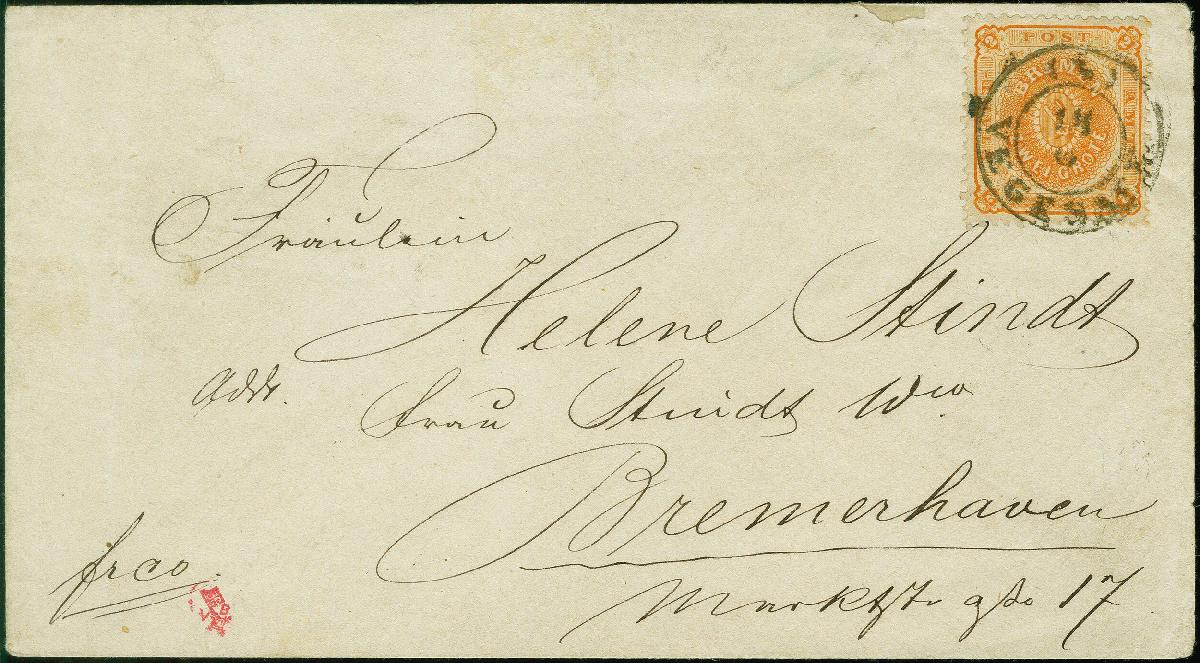 POST
BREMEN
ZWEI GROTE
VEGESACK
14
6
Fräulein
Helene Stindt
Addr. Frau Stindt Wwe
Bremerhaven
frco.
Marktstr 17